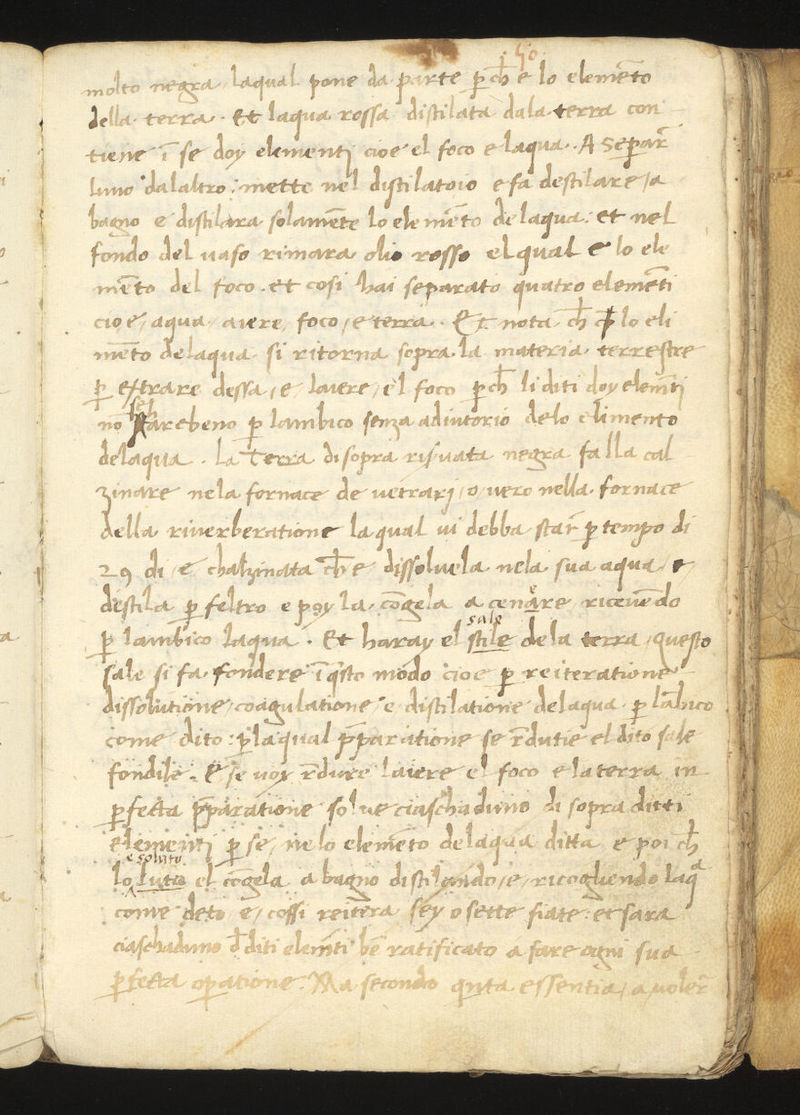 50
molto negra laqual pone da parte p̱ch̄ e lo elemēto
della terra · Et laqua rossa distilata dala terra con
tiene ī se doy elementj cioe el foco e laqua · A separar̄
luno dalaltro : mette nel distilatoio e fa destilare / a
bagno e distilara solamēte lo elemēto de laqua : et nel
fondo del uaso rimara olio rosso el qual e lo ele
mēto del foco · et cosi hai separato quatro elemēti
cioe / aqua / aiere / foco / e terra · Et nota ch̄ lo eli
mēto de laqua si ritorna sopra la materia terrestre
p̱ extrare dessa / e / laiere / el foco p̱ch̄ li diti doy elem̄ti
nō farebeno p̱ lambico senza adiutorio delo elimento
delaqua · La Terra di sopra risuata negra falla cal
zinare nela fornace de uetrarj / o / uero nella fornace
della riuerberatione laqual ui debba star̄ p̱ tempo di
29 di / e chalzinata ch̄ e dissoluela nela sua aqua e
destila p̱ feltro e poy la cōgela a cenāre riceuēdo
p̱ lambico laqua · Et haray el stile sale dela terra / questo
sale si fa fondere ī q̄sto modo cioe p̱ reiteratione
dissolutione / coagulatione / e distilatione delaqua p̱ lābico
come dito : p̱ laqual p̄paratione se r̄dutie el dito sale
fondile · E se uoy r̄dure laiere el foco e la terra in
p̱fetta p̄paratione solue ciaschaduno di sopra ditti
elementj p̱ se / ne lo elemēto delaqua ditta e poi ch̄
e soluto
lo luto el cōgela a bagno distilando / e / ricogliendo laqª
come deto e / cossi reitera sey o sette fiate : et sara
ciaschaduno d̄ diti elem̄ti bē ratificato a fare ogni sua
p̱fetta op̱atione · Ma secondo qīnta essentia / a uoler̄